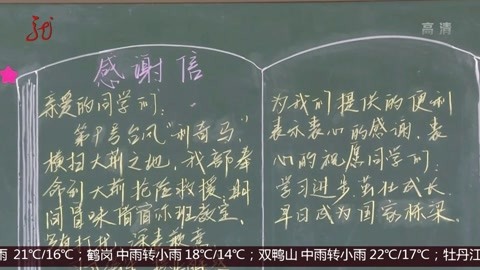 高清
感谢信
亲爱的同学们：
第9号台风"利奇马"
横扫大荆之地，我部奉
命到大荆抢险救援，期
间冒昧借宿你班教室，
为我们提供的便利
表示衷心的感谢，衷
心的祝愿同学们：
学习进步，茁壮成长，
早日成为国家栋梁。
雨 21℃/16℃；鹤岗 中雨转小雨 18℃/14℃；双鸭山 中雨转小雨 22℃/17℃；牡丹江